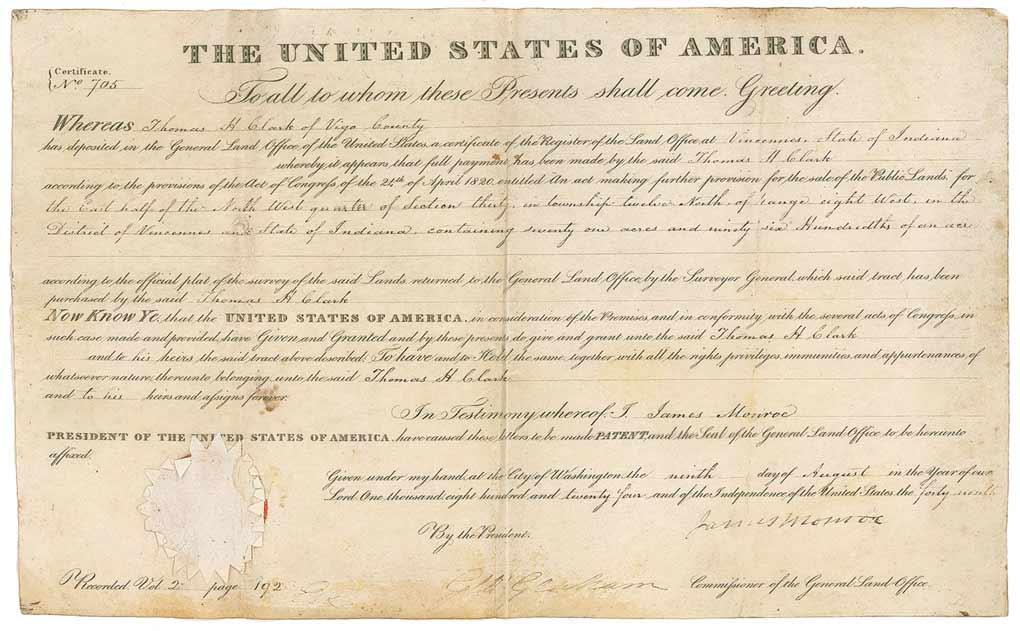 THE UNITED STATES OF AMERICA.
Certificate.
No 705
To all to whom these Presents shall come. Greeting.
Whereas Thomas H Clark of Vigo County
has deposited in the General Land Office of the United States, a certificate of the Register of the Land Office at Vincennes, State of Indiana
whereby it appears that full payment has been made by the said Thomas H Clark
according to the provisions of the Act of Congress of the 24th of April 1820, entitled An act making further provision for the sale of the Public Lands, for
the East half of the North West quarter of Section thirty, in township twelve North, of range eight West, in the
District of Vincennes and State of Indiana, containing seventy one acres and ninety six Hundredths of an acre
according to the official plat of the survey of the said Lands, returned to the General Land Office by the Surveyor General, which said tract has been
purchased by the said Thomas H Clark
Now Know Ye, that the UNITED STATES OF AMERICA, in consideration of the Premises, and in conformity with the several acts of Congress, in
such case made and provided, have Given and Granted and by these presents do give and grant unto the said Thomas H Clark
and to his heirs, the said tract above described: To have and to Hold the same, together with all the rights, privileges, immunities and appurtenances of
whatsoever nature, thereunto belonging, unto the said Thomas H Clark
and to his heirs and assigns forever.
In Testimony whereof, I, James Monroe
PRESIDENT OF THE UNITED STATES OF AMERICA, have caused these letters to be made PATENT, and the Seal of the General Land Office to be hereunto
affixed.
Given under my hand, at the City of Washington, the ninth day of August in the Year of our
Lord One thousand eight hundred and twenty four and of the Independence of the United States the forty ninth
James Monroe
By the President.
Recorded, Vol 2 page 192 Graham Commissioner of the General Land Office.